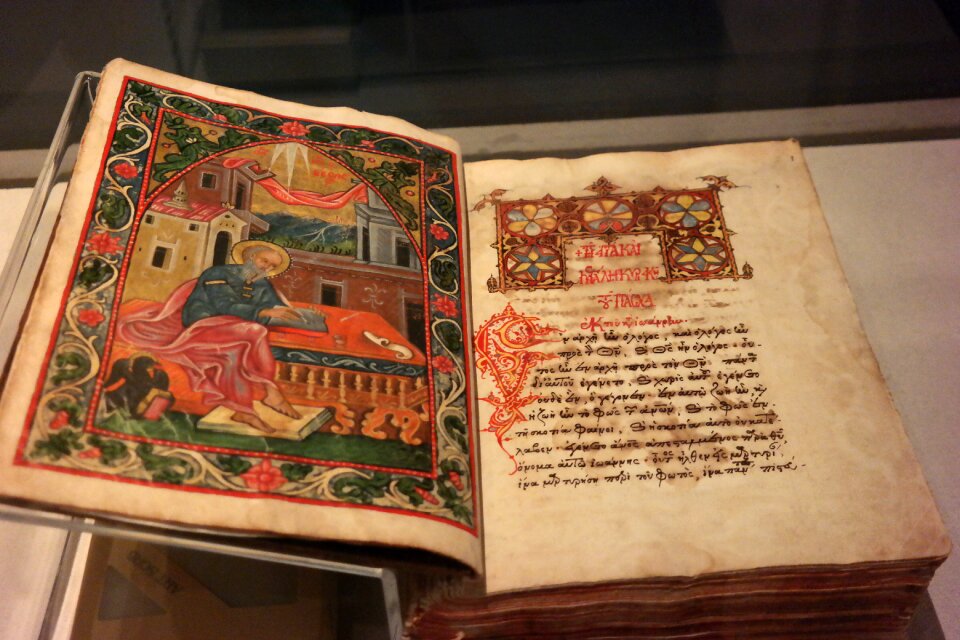 ἐν ἀρχῇ ἦν ὁ λόγος, καὶ ὁ λόγος ἦν
πρὸς τὸν Θν. καὶ Θς ἦν ὁ λόγος. οὗ-
τος ἦν ἐν ἀρχῇ πρὸς τὸν Θν. πάντα
δι' αὐτοῦ ἐγένετο. καὶ χωρὶς αὐτοῦ ἐγένετο
οὐδὲ ἕν, ὃ γέγονεν. ἐν αὐτῷ ζωὴ ἦν, καὶ
ἡ ζωὴ ἦν τὸ φῶς τῶν ἀνων. καὶ τὸ φῶς ἐν
τῇ σκοτίᾳ φαίνει. καὶ ἡ σκοτία αὐτὸ οὐ κατέ
λαβεν. ἐγένετο ἄνος ἀπεσταλμένος παρὰ Θυ,
ὄνομα αὐτῷ Ἰωάννης. οὗτος ἦλθεν εἰς μαρτυρί
ἵνα μαρτυρήσῃ περὶ τοῦ φωτός, ἵνα πάντ πιστ